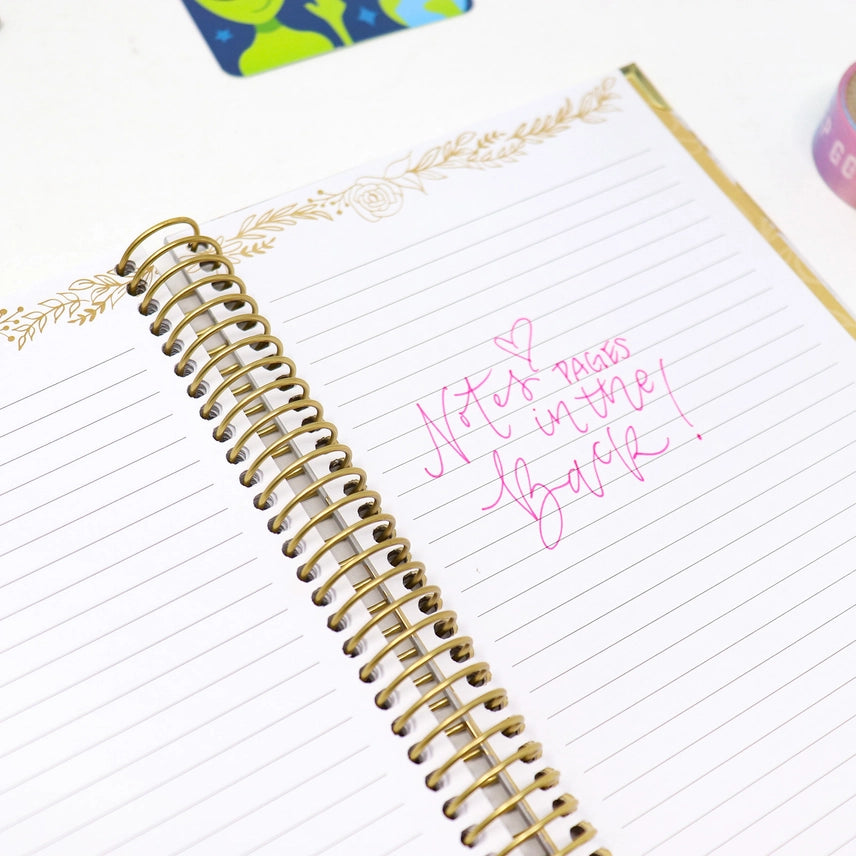 Notes PAGES
in the
Back!
P GO